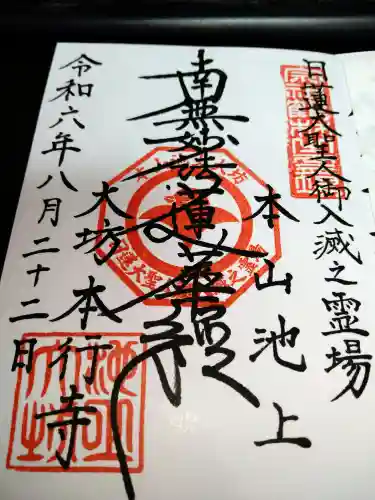 日蓮大聖人御入滅之霊場
本山池上
南無妙法蓮華経
大坊本行寺
令和六年八月二十二日